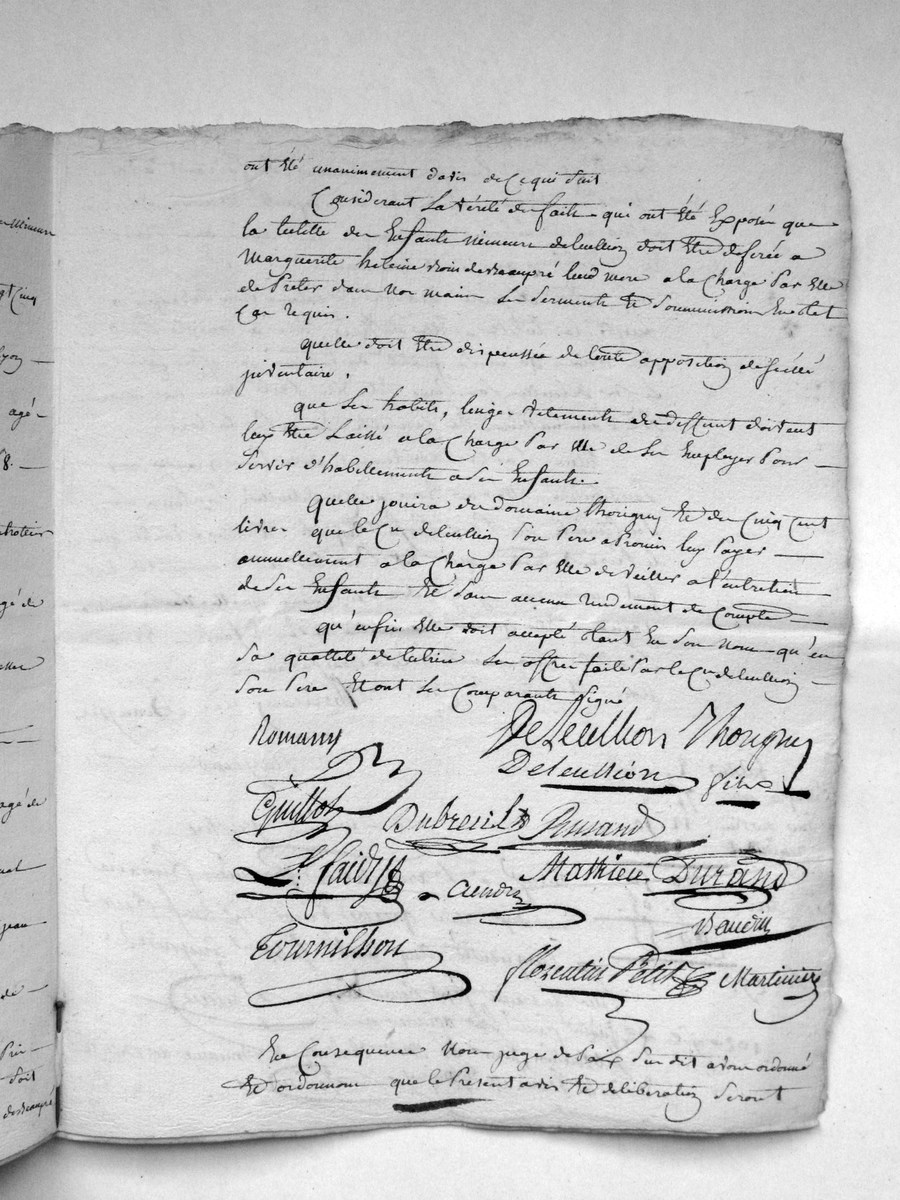 ont été unanimement d'avis de ce qui suit
Considerant la vérité des faits qui ont été Exposés que
la tutelle des Enfants mineurs deleullion doit Etre deferée a
Marguerite heleine drois de beaupré leur mere a la Charge Par Elle
de Preter dans nos mains les Serments Et Soummissions En tel
Cas requis.
quelle doit Etre dispenssée de toute apposition de scéllé
inventaire.
que les habits, linges vetements du deffunt doivent
luy Etre Laissé a la Charge Par Elle de les Employer Pour
Servir d'habillements a ses Enfants.
quelle jouira du domaine thorigny Et des Cinq cent
livres que le Cn deleullion Son Pere a Promis luy Payer
annuellement a la Charge Par Elle de veiller a l'entretien
de ses Enfants Et Sans aucun rendement de Compte
qu'enfin Elle doit accepté tant En Son nom qu'en
Sa quallité de tutrice les offres faite Par le Cn deleullion
Son Pere Et ont les Comparants Signé
Romany
DeLeullion Thorigny
Deleullion fils
Guillot
Dubreuil
Rusand
Mathieu Durand
Baudin
Tournilhon
florentin Petit
Martiniere
En Consequence Nous juge de Paix Sus dit avons ordonné
Et ordonnons que le Present avis Et deliberation Seront